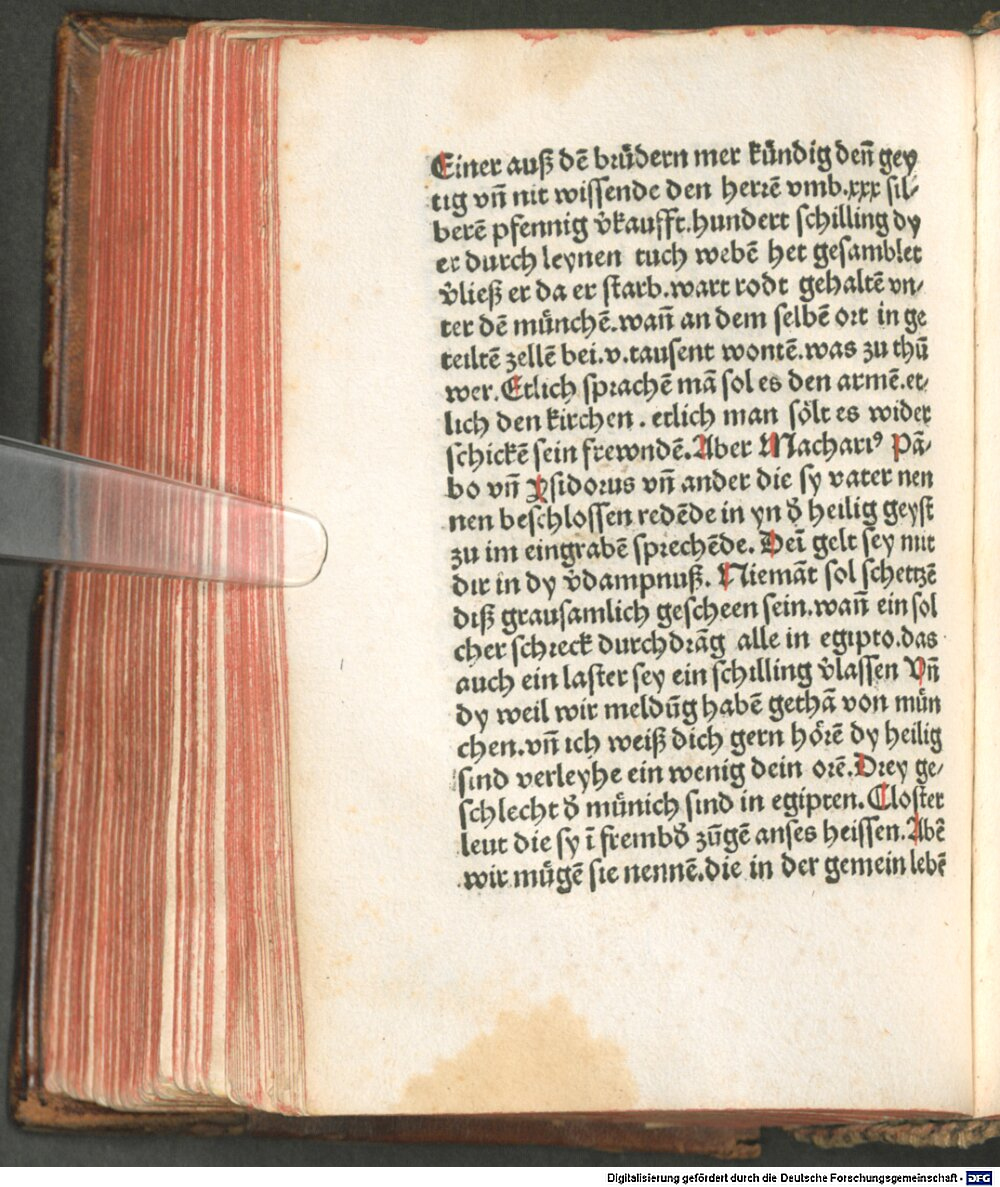 Einer auß dē brüdern mer kündig deñ gey
tig vñ nit wissende den herrē vmb.xxx sil⸗
berē pfennig v̄kaufft.hundert schilling dy
er durch leynen tuch webē het gesamblet
v̄ließ er da er starb.wart rodt gehaltē vn⸗
ter dē münchē.wañ an dem selbē ort in ge
teiltē zellē bei.v.tausent wontē.was zu thū
wer.Etlich sprachē mā sol es den armē.et⸗
lich den kirchen.etlich man sölt es wider
schickē sein frewndē.Aber Machariꝰ Pā⸗
bo vñ Ysidorus vñ ander die sy vater nen
nen beschlossen redēde in yn d̄ heilig geyst
zu im eingrabē sprechēde.Deī gelt sey mit
dir in dy v̄dampnuß.Niemāt sol schetzē
diß grausamlich gescheen sein.wañ ein sol
cher schreck durchdrāg alle in egipto.das
auch ein laster sey ein schilling v̄lassen Vñ
dy weil wir meldūg habē gethā von mün
chen.vñ ich weiß dich gern hörē dy heilig
sind verleyhe ein wenig dein orē.Drey ge⸗
schlecht d̄ münich sind in egipten.Closter
leut die sy ī frembd̄ zūgē anses heissen.Abē
wir mügē sie nennē.die in der gemein lebē
Digitalisierung gefördert durch die Deutsche Forschungsgemeinschaft - DFG